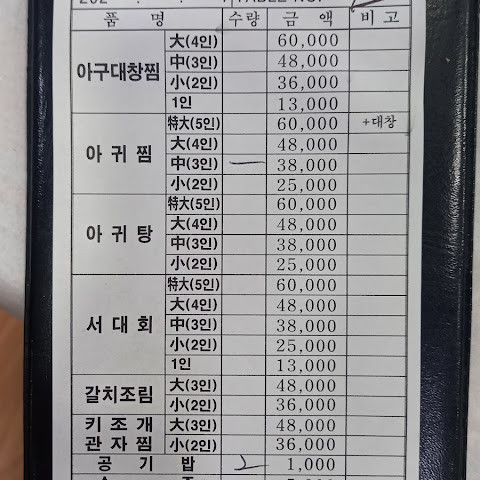 품 명 수량 금 액 비 고
아구대창찜 大(4인) 60,000
中(3인) 48,000
小(2인) 36,000
1인 13,000
아 귀 찜 特大(5인) 60,000 +대창
大(4인) 48,000
中(3인) 一 38,000
小(2인) 25,000
아 귀 탕 特大(5인) 60,000
大(4인) 48,000
中(3인) 38,000
小(2인) 25,000
서 대 회 特大(5인) 60,000
大(4인) 48,000
中(3인) 38,000
小(2인) 25,000
1인 13,000
갈치조림 大(3인) 48,000
小(2인) 36,000
키 조 개 大(3인) 48,000
관 자 찜 小(2인) 36,000
공 기 밥 2 1,000